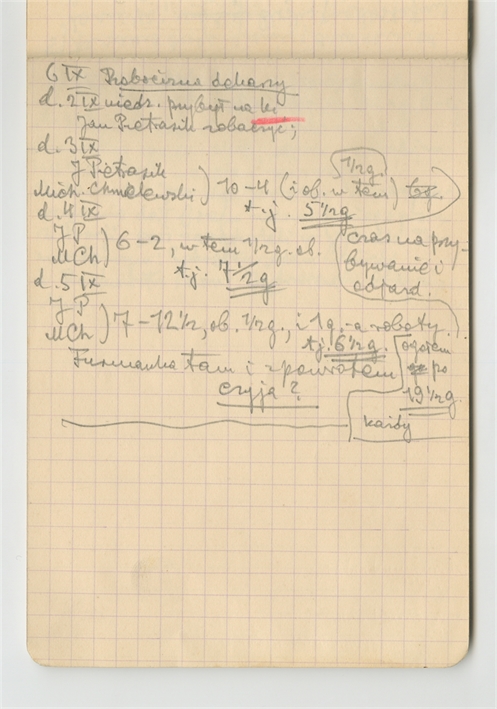 6 IX Robocizna dekarzy
d. 2 IX niedz. przybył na
Jan Pietrasik zobaczyć;
d. 3 IX
J Pietrasik
Mich. Chmelewski) 10-4 (i ob. w tem) 1/2 g.
t.j. 5 1/2 g
d. 4 IX
J P
M Ch) 6-2, w tem 1/2 g. ob.
t.j. 7 1/2 g
czas na przy-
bywanie i
odjazd.
d. 5 IX
J P
M Ch) 7-12 1/2, ob. 1/2 g., i 1 g.-a roboty.
tj. 6 1/2 g.
Furmanka tam i zpowrotem
czyja?
ogółem
po
19 1/2 g.
każdy